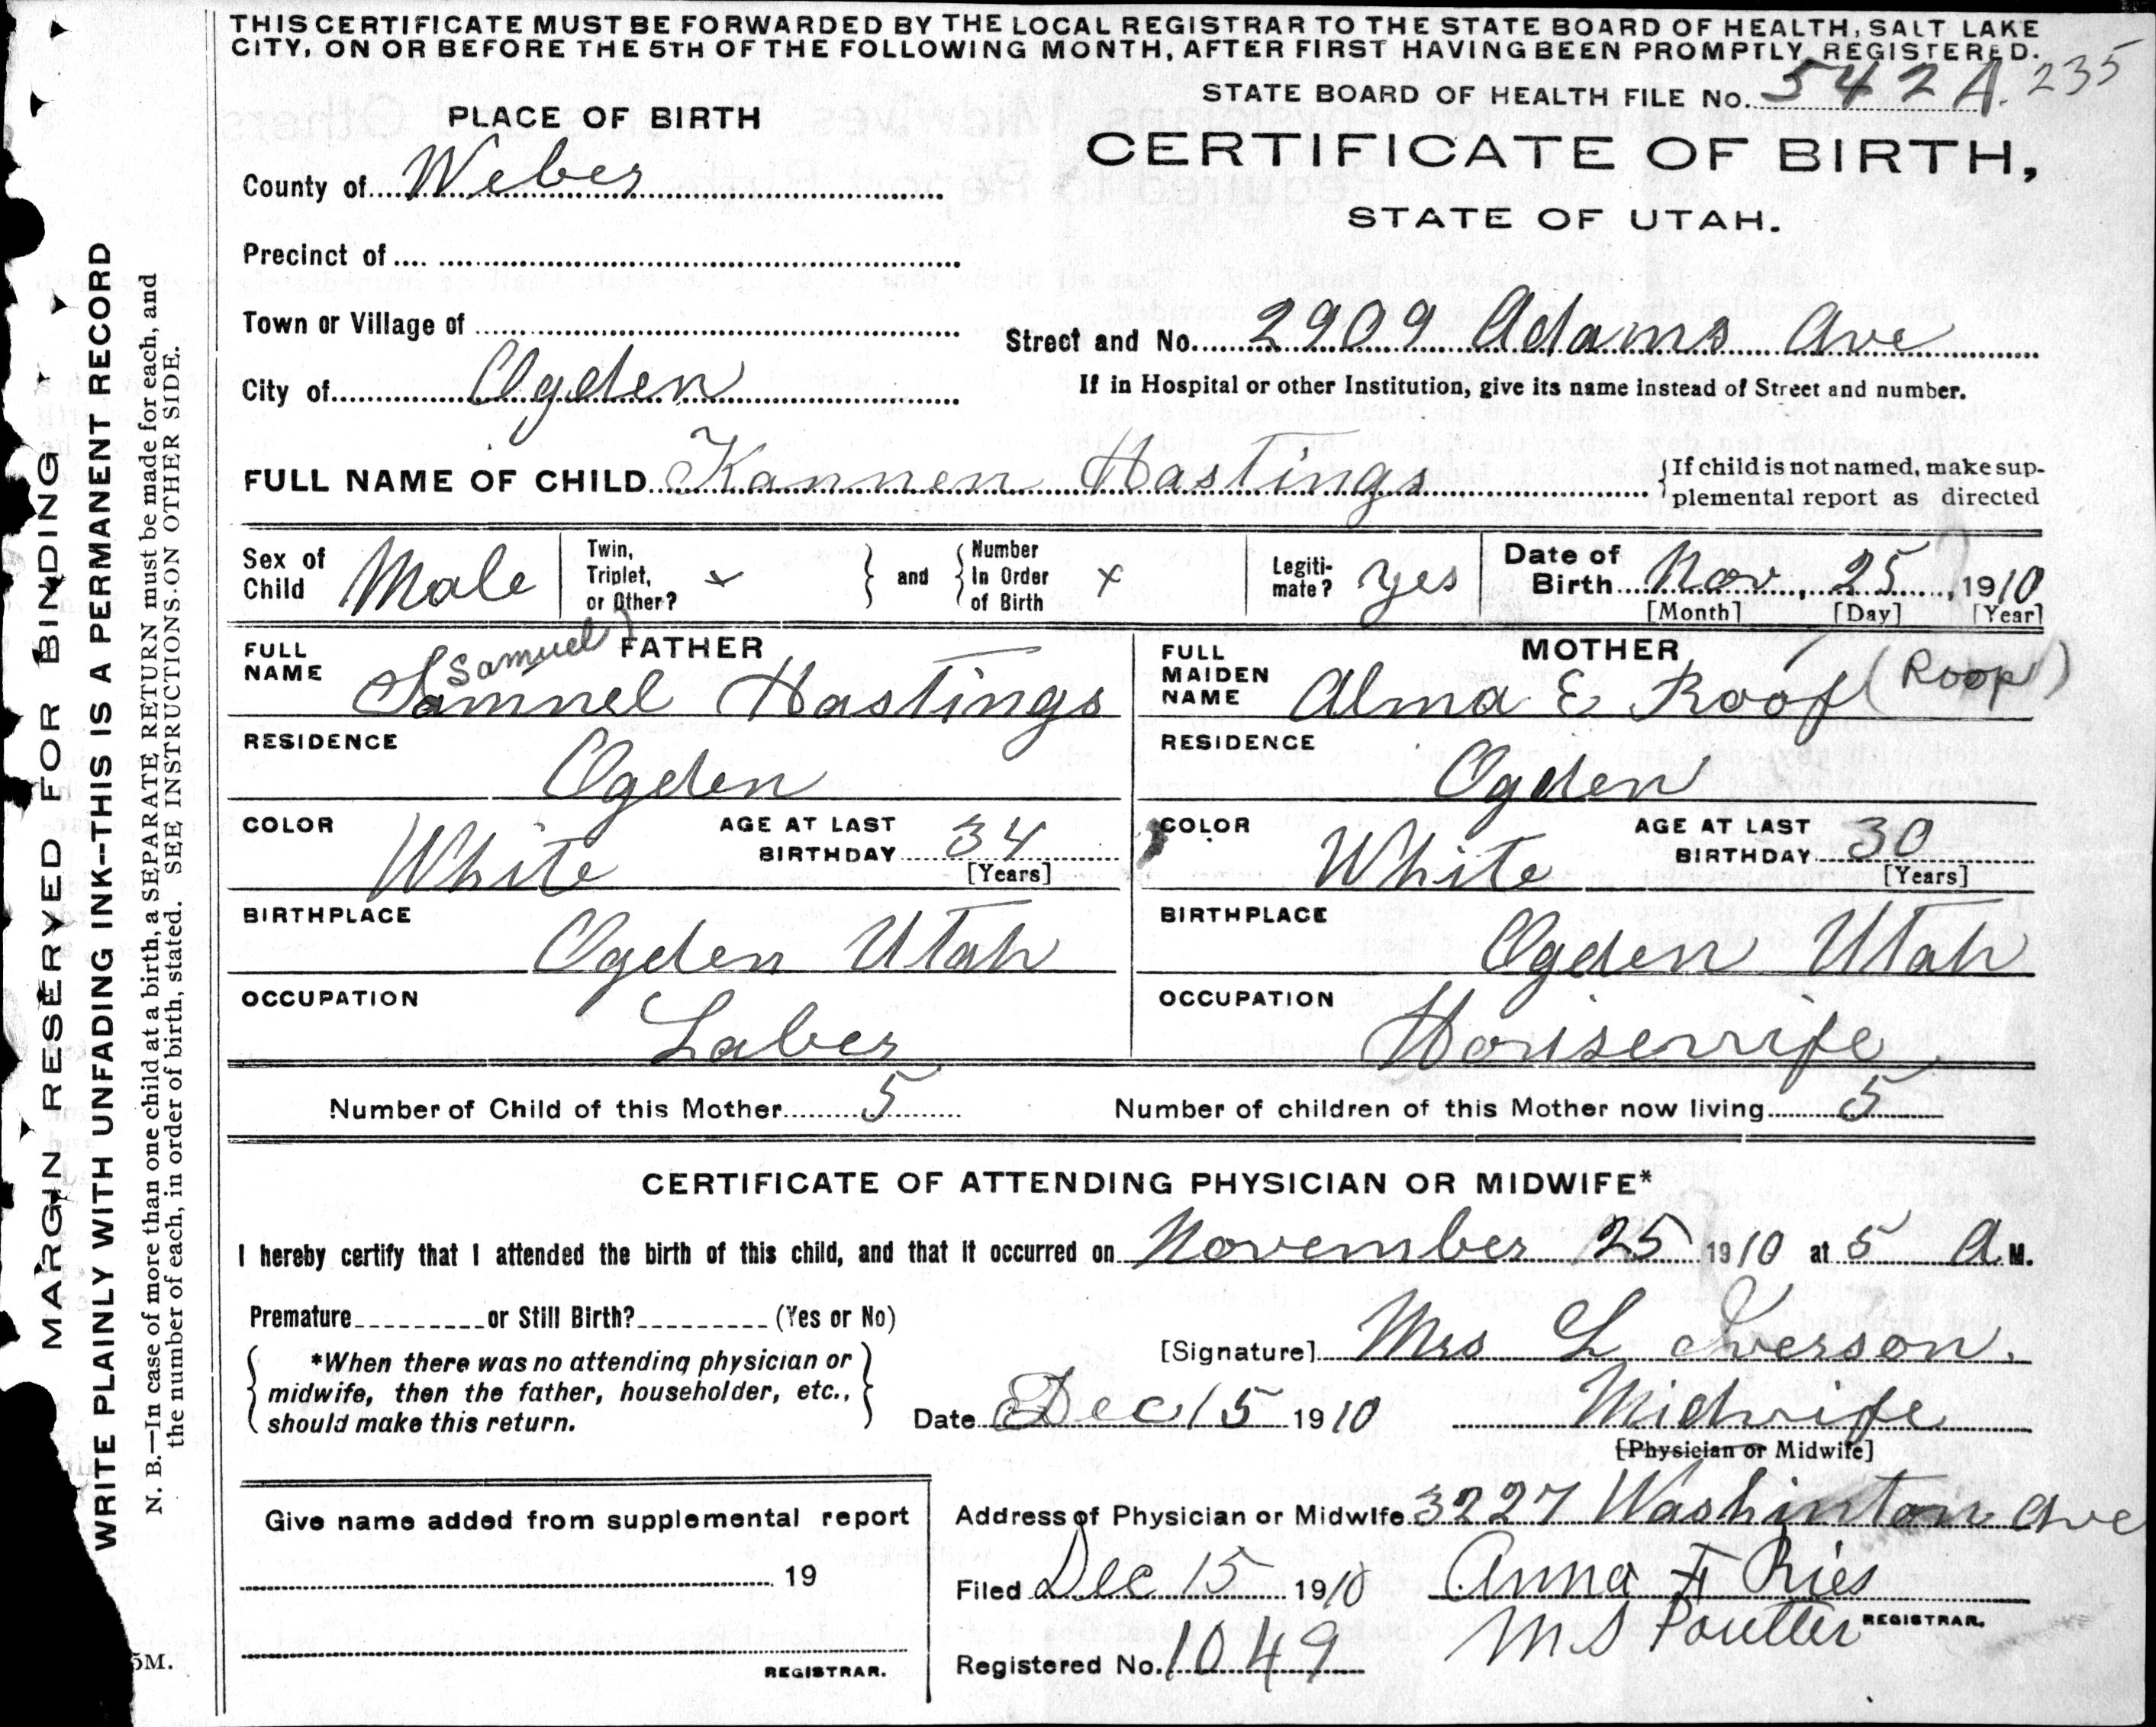 THIS CERTIFICATE MUST BE FORWARDED BY THE LOCAL REGISTRAR TO THE STATE BOARD OF HEALTH, SALT LAKE
CITY, ON OR BEFORE THE 5TH OF THE FOLLOWING MONTH, AFTER FIRST HAVING BEEN PROMPTLY REGISTERED.
STATE BOARD OF HEALTH FILE No. 542 A. 235
PLACE OF BIRTH
CERTIFICATE OF BIRTH,
STATE OF UTAH.
County of Weber
Precinct of
Town or Village of
Street and No. 2909 Adams Ave
City of Ogden
If in Hospital or other Institution, give its name instead of Street and number.
FULL NAME OF CHILD Kannen Hastings
If child is not named, make sup-
plemental report as directed
Sex of Child Male
Twin, Triplet, or Other? x
and
Number In Order of Birth x
Legiti-mate? yes
Date of Birth Nov, 25, 1910
[Month] [Day] [Year]
FATHER
FULL NAME Samnel Hastings
Samuel)
MOTHER
FULL MAIDEN NAME Alma E Roof (Roop)
RESIDENCE Ogden
RESIDENCE Ogden
COLOR White AGE AT LAST BIRTHDAY 34 [Years]
COLOR White AGE AT LAST BIRTHDAY 30 [Years]
BIRTHPLACE Ogden Utah
BIRTHPLACE Ogden Utah
OCCUPATION Laber
OCCUPATION Housewife
Number of Child of this Mother 5
Number of children of this Mother now living 5
CERTIFICATE OF ATTENDING PHYSICIAN OR MIDWIFE*
I hereby certify that I attended the birth of this child, and that it occurred on November 25 1910 at 5 A M.
Premature or Still Birth? (Yes or No)
[Signature] Mrs L Iverson.
*When there was no attending physician or
midwife, then the father, householder, etc.,
should make this return.
Date Dec 15 1910
Midwife
[Physician or Midwife]
Give name added from supplemental report
19
REGISTRAR.
Address of Physician or Midwife 3227 Washinton Ave
Filed Dec 15 1910 Anna F Ries
REGISTRAR.
Registered No. 1049
MARGIN RESERVED FOR BINDING
WRITE PLAINLY WITH UNFADING INK--THIS IS A PERMANENT RECORD
N. B.—In case of more than one child at a birth, a SEPARATE RETURN must be made for each, and
the number of each, in order of birth, stated. SEE INSTRUCTIONS ON OTHER SIDE.
5M.